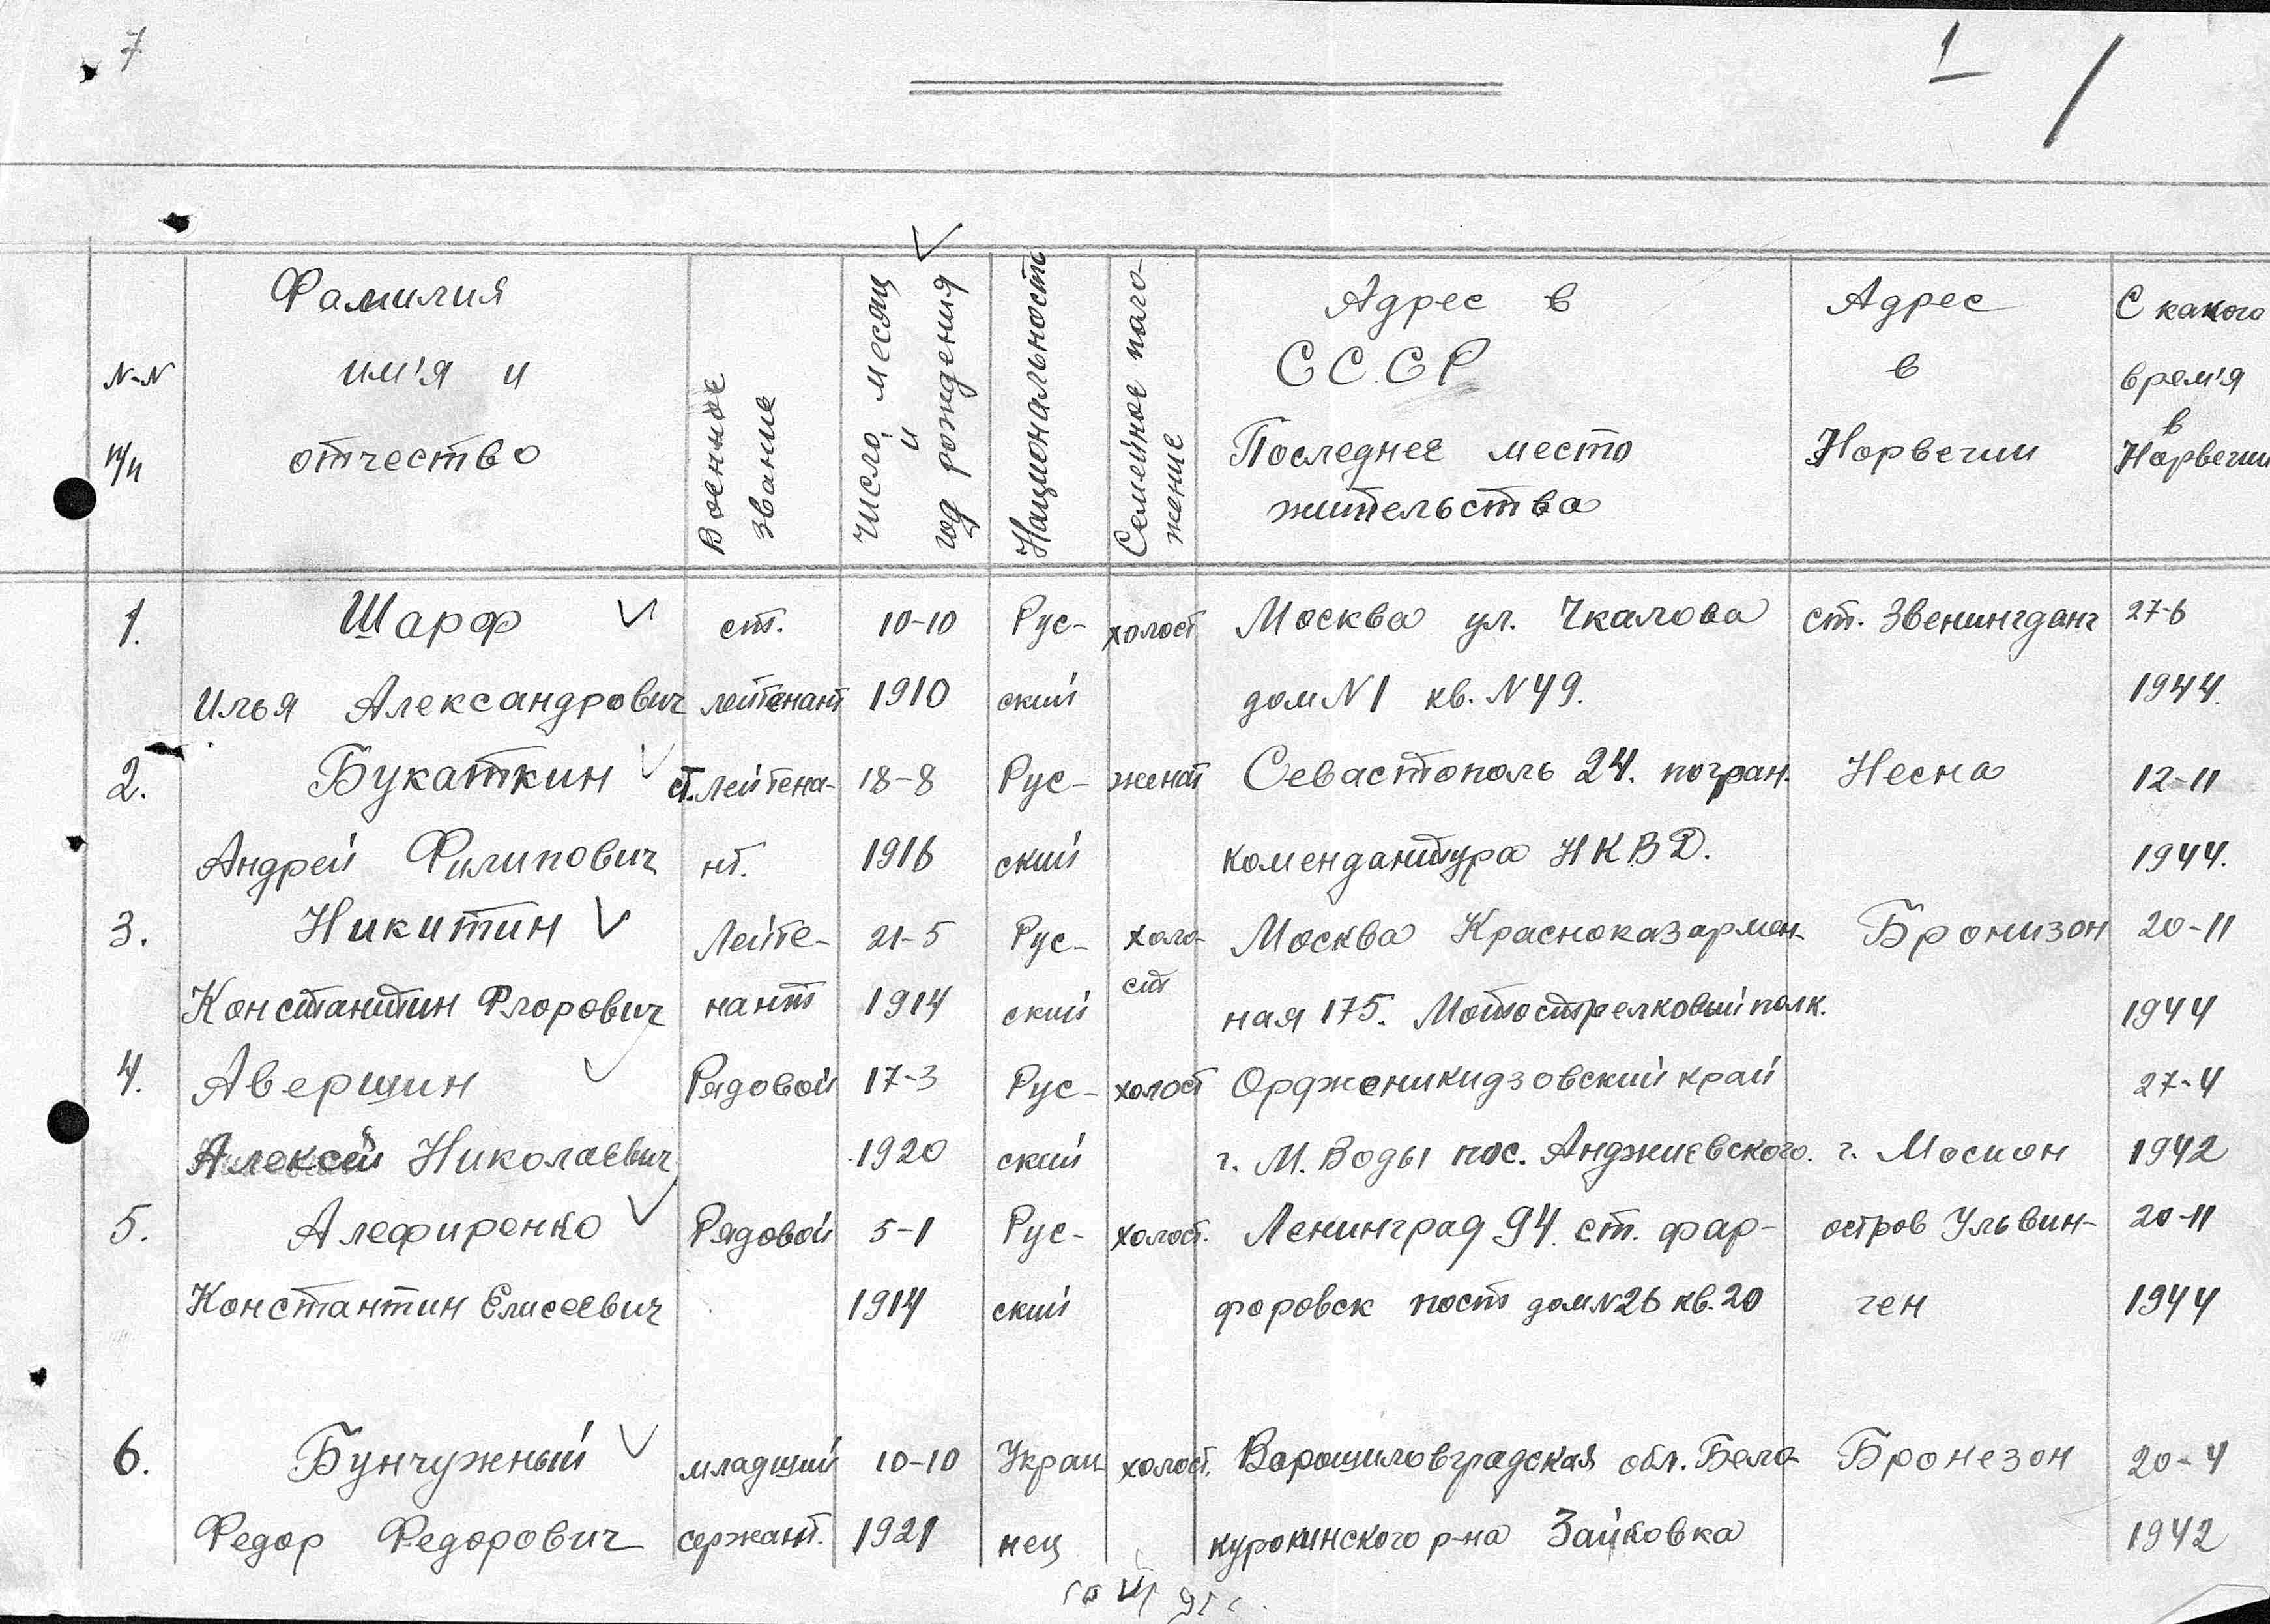 7
1
Фамилия
им'я и
отчество
N-N
п/п
Военное
звание
Число, месяц
и
год рождения
Национальность
Семейное поло-
жение
Адрес в
СССР
Последнее место
жительства
Адрес
в
Норвегии
С какого
врем'я
в
Норвегии
1. Шарф ст. 10-10 Рус- холост Москва ул. Чкалова ст. Звенингданг 27-6
Илья Александрович лейтенант 1910 ский дом N1 кв. N49. 1944.
2. Букаткин ст.лейтена- 18-8 Рус- женат Севастополь 24. погран. Несна 12-11
Андрей Филипович нт. 1916 ский комендантура НКВД. 1944.
3. Никитин Лейте- 21-5 Рус- холо- Москва Красноказармен- Бронизон 20-11
ст
Константин Флорович нант 1914 ский ная 175. Мотострелковый полк. 1944
4. Авершин Рядовой 17-3 Рус- холост Орджоникидзовский край 27-4
Алексей Николаевич 1920 ский г. М. Воды пос. Анджиевского. г. Мосион 1942
5. Алефиренко Рядовой 5-1 Рус- холост. Ленинград 94. ст. фар- остров Ульвин- 20-11
Константин Елисеевич 1914 ский форовск пост дом N26 кв. 20 ген 1944
6. Бунчужный младший 10-10 Украи холост. Ворошиловградская обл. Бело- Бронезон 20-4
Федор Федорович сержант. 1921 нец куропкинского р-на Зайковка 1942